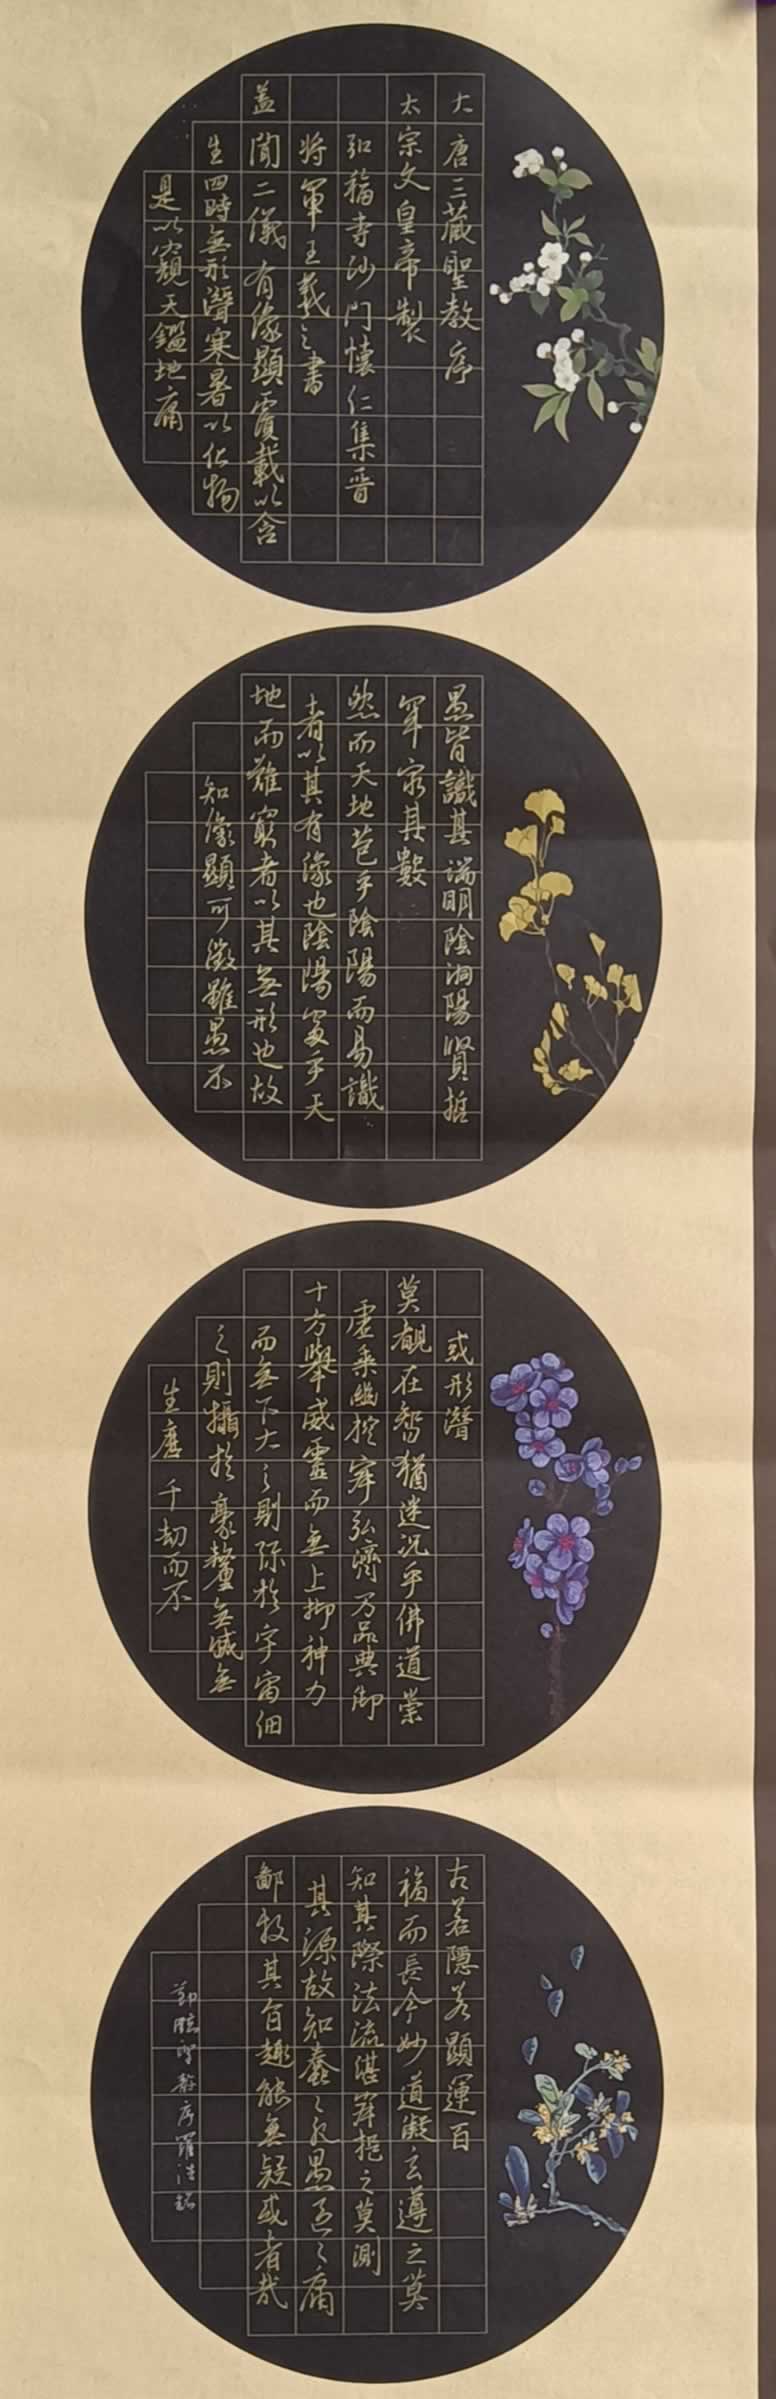 大唐三藏聖教序
太宗文皇帝製
弘福寺沙門懷仁集晉
將軍王羲之書
蓋聞二儀有像顯覆載以含
生四時無形潛寒暑以化物
是以窺天鑑地庸
愚皆識其端明陰洞陽賢哲
罕窮其數
然而天地苞乎陰陽而易識
者以其有像也陰陽處乎天
地而難窮者以其無形也故
知像顯可徵雖愚不
或形潛
莫覩在智猶迷況乎佛道崇
虛乘幽控寂弘濟万品典御
十方舉威靈而無上抑神力
而無下大之則弥於宇宙細
之則攝於豪釐無滅無
生歷千劫而不
古若隱若顯運百
福而長今妙道凝玄遵之莫
知其際法流湛寂挹之莫測
其源故知蠢々凡愚區々庸
鄙投其旨趣能無疑或者哉
聖教序羅浩銘